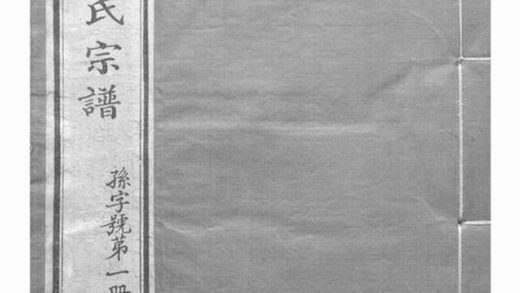 氏宗譜
孫字號苐一冊